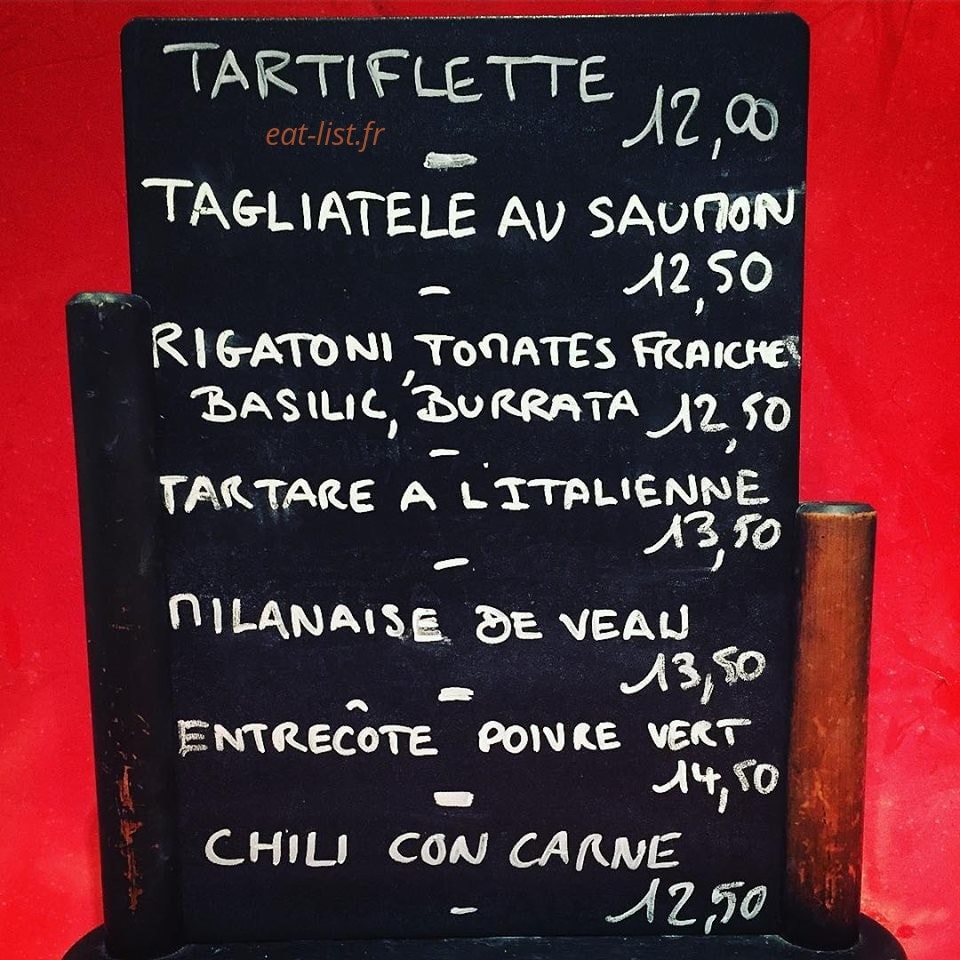 TARTIFLETTE
12,00
eat-list.fr
TAGLIATELE AU SAUMON
12,50
RIGATONI, TOMATES FRAICHES
BASILIC, BURRATA 12,50
TARTARE A L'ITALIENNE
13,50
MILANAISE DE VEAU
13,50
ENTRECÔTE POIVRE VERT
14,50
CHILI CON CARNE
12,50